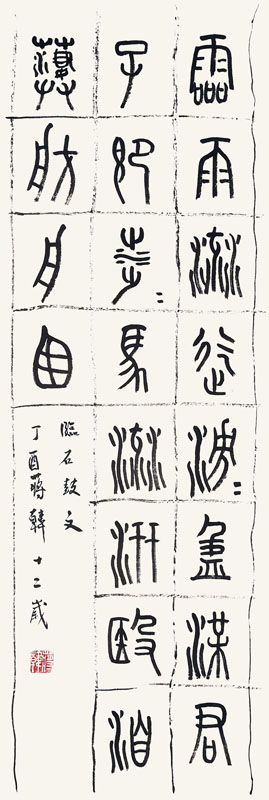 霝雨流迄滂〻盈渫君
子即涉〻馬流汧殹洎
淒舫舟囪
臨石鼓文
丁酉蔣韓十二歲